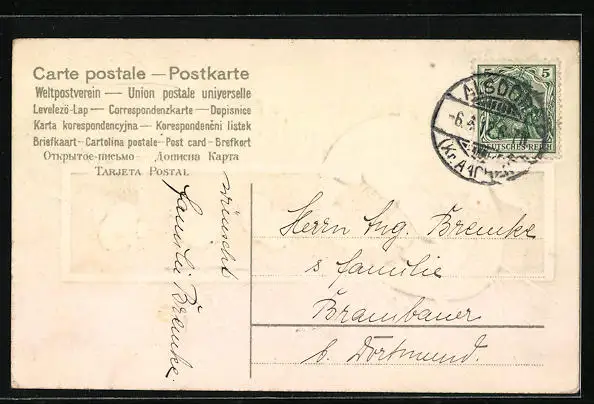 Carte postale — Postkarte
Weltpostverein — Union postale universelle
Levelező-Lap — Correspondenzkarte — Dopisnice
Karta korespondencyjna — Korespondenční listek
Briefkaart - Cartolina postale - Post card - Brefkort
Открытое-письмо — Дописна Карта
Tarjeta Postal
wünscht
Familie Bremke.
5
DEUTSCHES REICH
ALSDORF
-6.4.
(Kr. AACHEN)
Herrn Aug. Bremke
s familie
Brambauer
b. Dortmund.